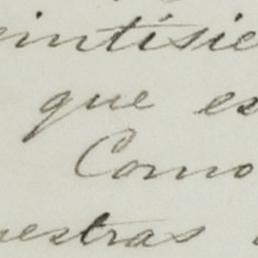 eintisie
que es
Como
uestras